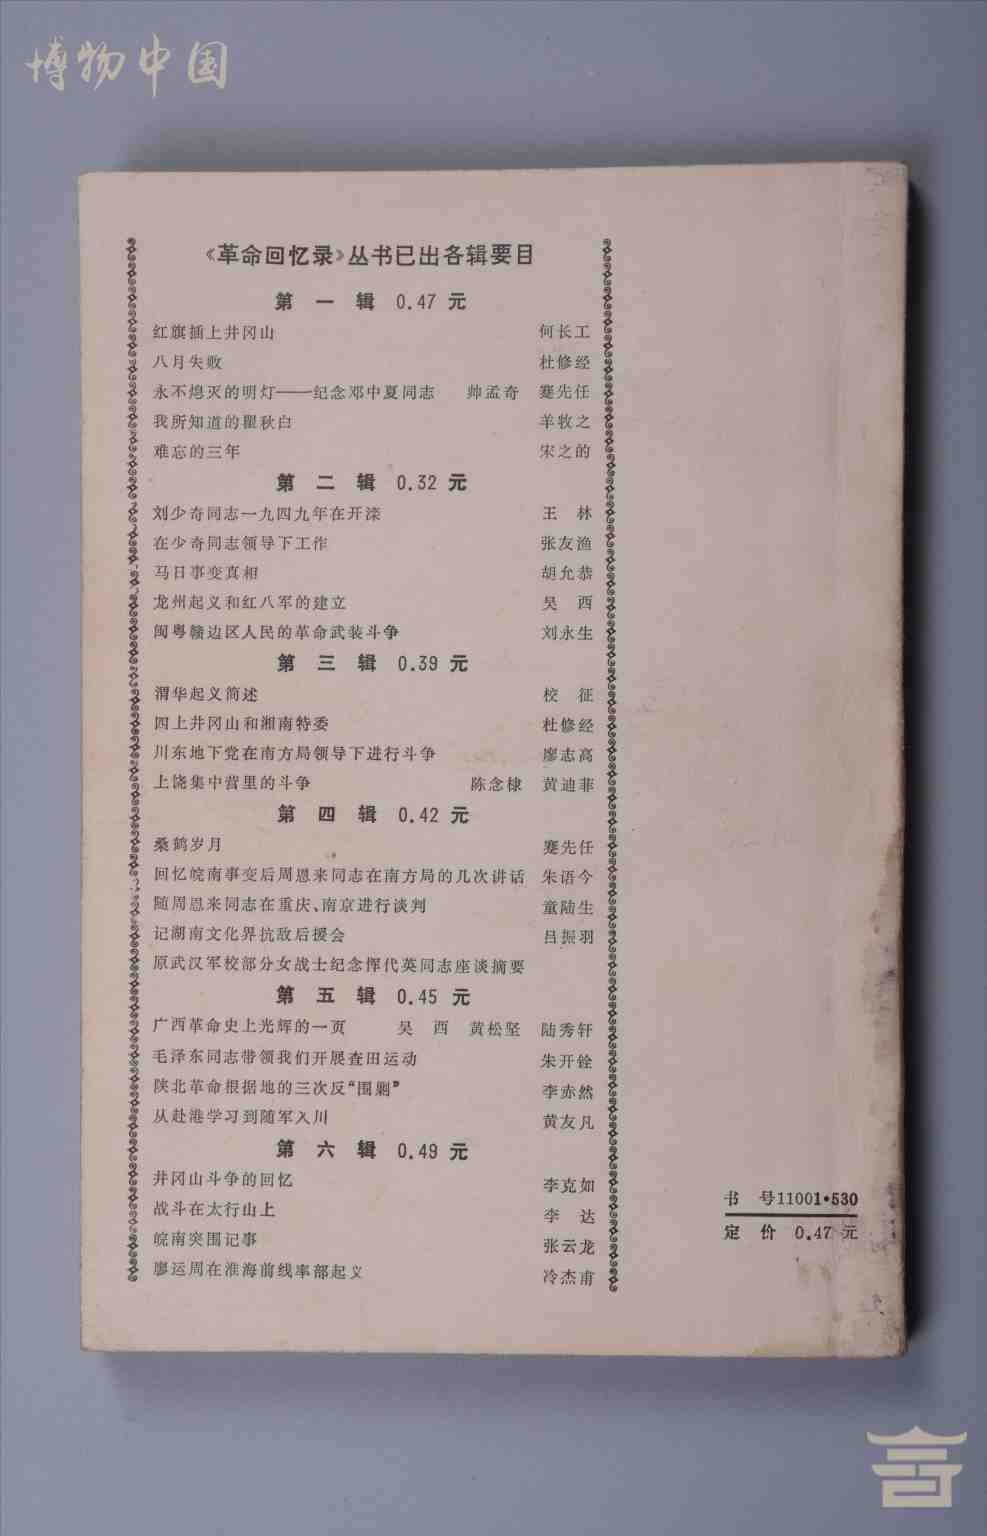 博物中国
《革命回忆录》丛书已出各辑要目
第 一 辑 0.47 元
红旗插上井冈山 何长工
八月失败 杜修经
永不熄灭的明灯——纪念邓中夏同志 帅孟奇 蹇先任
我所知道的瞿秋白 羊牧之
难忘的三年 宋之的
第 二 辑 0.32 元
刘少奇同志一九四九年在开滦 王 林
在少奇同志领导下工作 张友渔
马日事变真相 胡允恭
龙州起义和红八军的建立 吴 西
闽粤赣边区人民的革命武装斗争 刘永生
第 三 辑 0.39 元
渭华起义简述 校 征
四上井冈山和湘南特委 杜修经
川东地下党在南方局领导下进行斗争 廖志高
上饶集中营里的斗争 陈念棣 黄迪菲
第 四 辑 0.42 元
桑鹤岁月 蹇先任
回忆皖南事变后周恩来同志在南方局的几次讲话 朱语今
随周恩来同志在重庆、南京进行谈判 童陆生
记湖南文化界抗敌后援会 吕振羽
原武汉军校部分女战士纪念恽代英同志座谈摘要
第 五 辑 0.45 元
广西革命史上光辉的一页 吴 西 黄松坚 陆秀轩
毛泽东同志带领我们开展查田运动 朱开铨
陕北革命根据地的三次反“围剿” 李赤然
从赴港学习到随军入川 黄友凡
第 六 辑 0.49 元
井冈山斗争的回忆 李克如
战斗在太行山上 李 达
皖南突围记事 张云龙
廖运周在淮海前线率部起义 冷杰甫
书 号11001·530
定 价 0.47 元